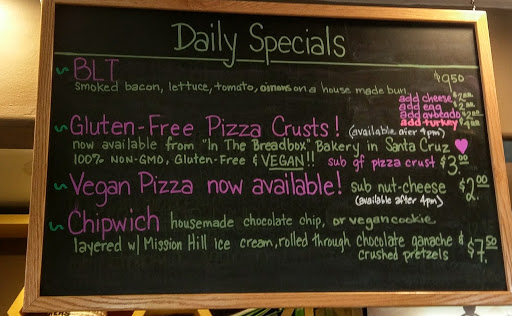 Daily Specials
~ BLT $9.50
smoked bacon, lettuce, tomato, onions on a house made bun
add cheese
add egg
add avocado
add turkey
~ Gluten-Free Pizza Crusts! (available after 4pm)
now available from "In The Breadbox" Bakery in Santa Cruz ♥
100% NON-GMO, Gluten-Free & VEGAN!! sub of pizza crust $3.00
~ Vegan Pizza now available! sub nut-cheese $2.00
(available after 4pm)
~ Chipwich housemade chocolate chip, or vegan cookie
layered w/ Mission Hill ice cream, rolled through chocolate ganache & $7.50
crushed pretzels